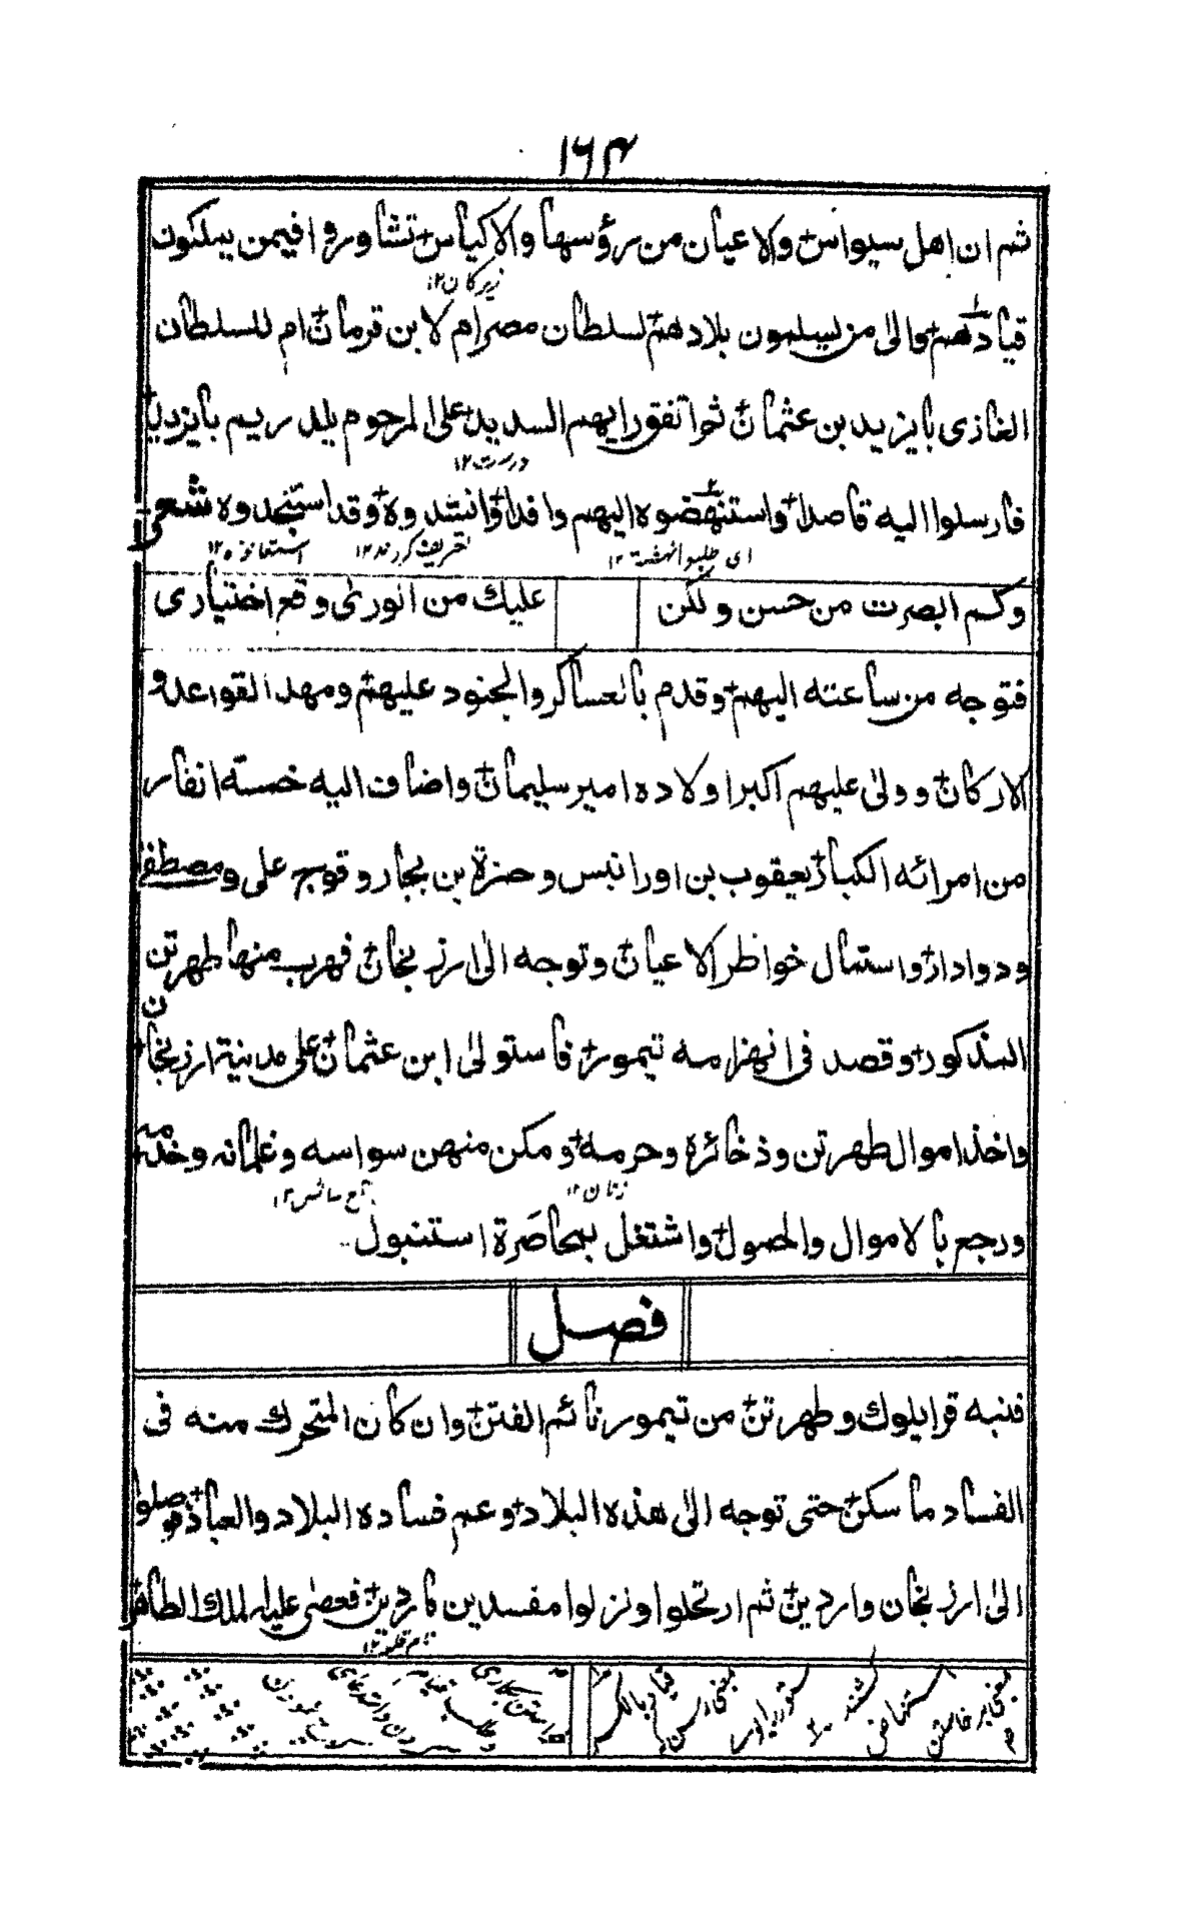 ۱۶۴
ثم ان اهل سيواس والاعيان من رؤسها والاكياس تشاوروا فيمن يملكون
زيركان ۱۲
قيادهم والى من يسلمون بلادهم لسلطان مصر ام لابن قرمان ام للسلطان
الغازى بايزيد بن عثمان ثم اتفق رايهم السديد على المرحوم يلدريم بايزيد
درست ۱۲
فارسلوا اليه قاصدا واستنهضوه اليهم وافدا وانشدوه وقد استنجدوه شعر
اى طلبوا نهضته ۱۲
استعانوه ۱۲
وكم ابصرت من حسن ولكن عليك من الورى وقع اختيارى
فتوجه من ساعته اليهم وقدم بالعساكر والجنود عليهم ومهد القواعد و
الاركان وولى عليهم اكبر اولاده امير سليمان واضاف اليه خمسة انفار
من امرائه الكبار يعقوب بن اورانبس وحمزة بن بجار وقوج على ومصطفى
ودوادار واستمال خواطر الاعيان وتوجه الى ارزنجان فهرب منها طهرتن
المذكور وقصد فى انهزامه تيمور فاستولى ابن عثمان على مدينة ارزنجان
واخذ اموال طهرتن وذخائره وحرمه ومكن منهن سواسه وغلمانه وخدمه
زنان ۱۲
ورجع بالاموال والحصول واشتغل بمحاصرة استنبول
فصل
فنبه قرايلوك وطهرتن من تيمور نائم الفتن وان كان المتحرك منه فى
الفساد ما سكن حتى توجه الى هذه البلاد وعم فساده البلاد والعباد فوصلوا
الى ارزنجان واردين ثم ارتحلوا ونزلوا مفسدين ماردين فعصى عليه الملك الظاهر
نام قلعه ۱۲